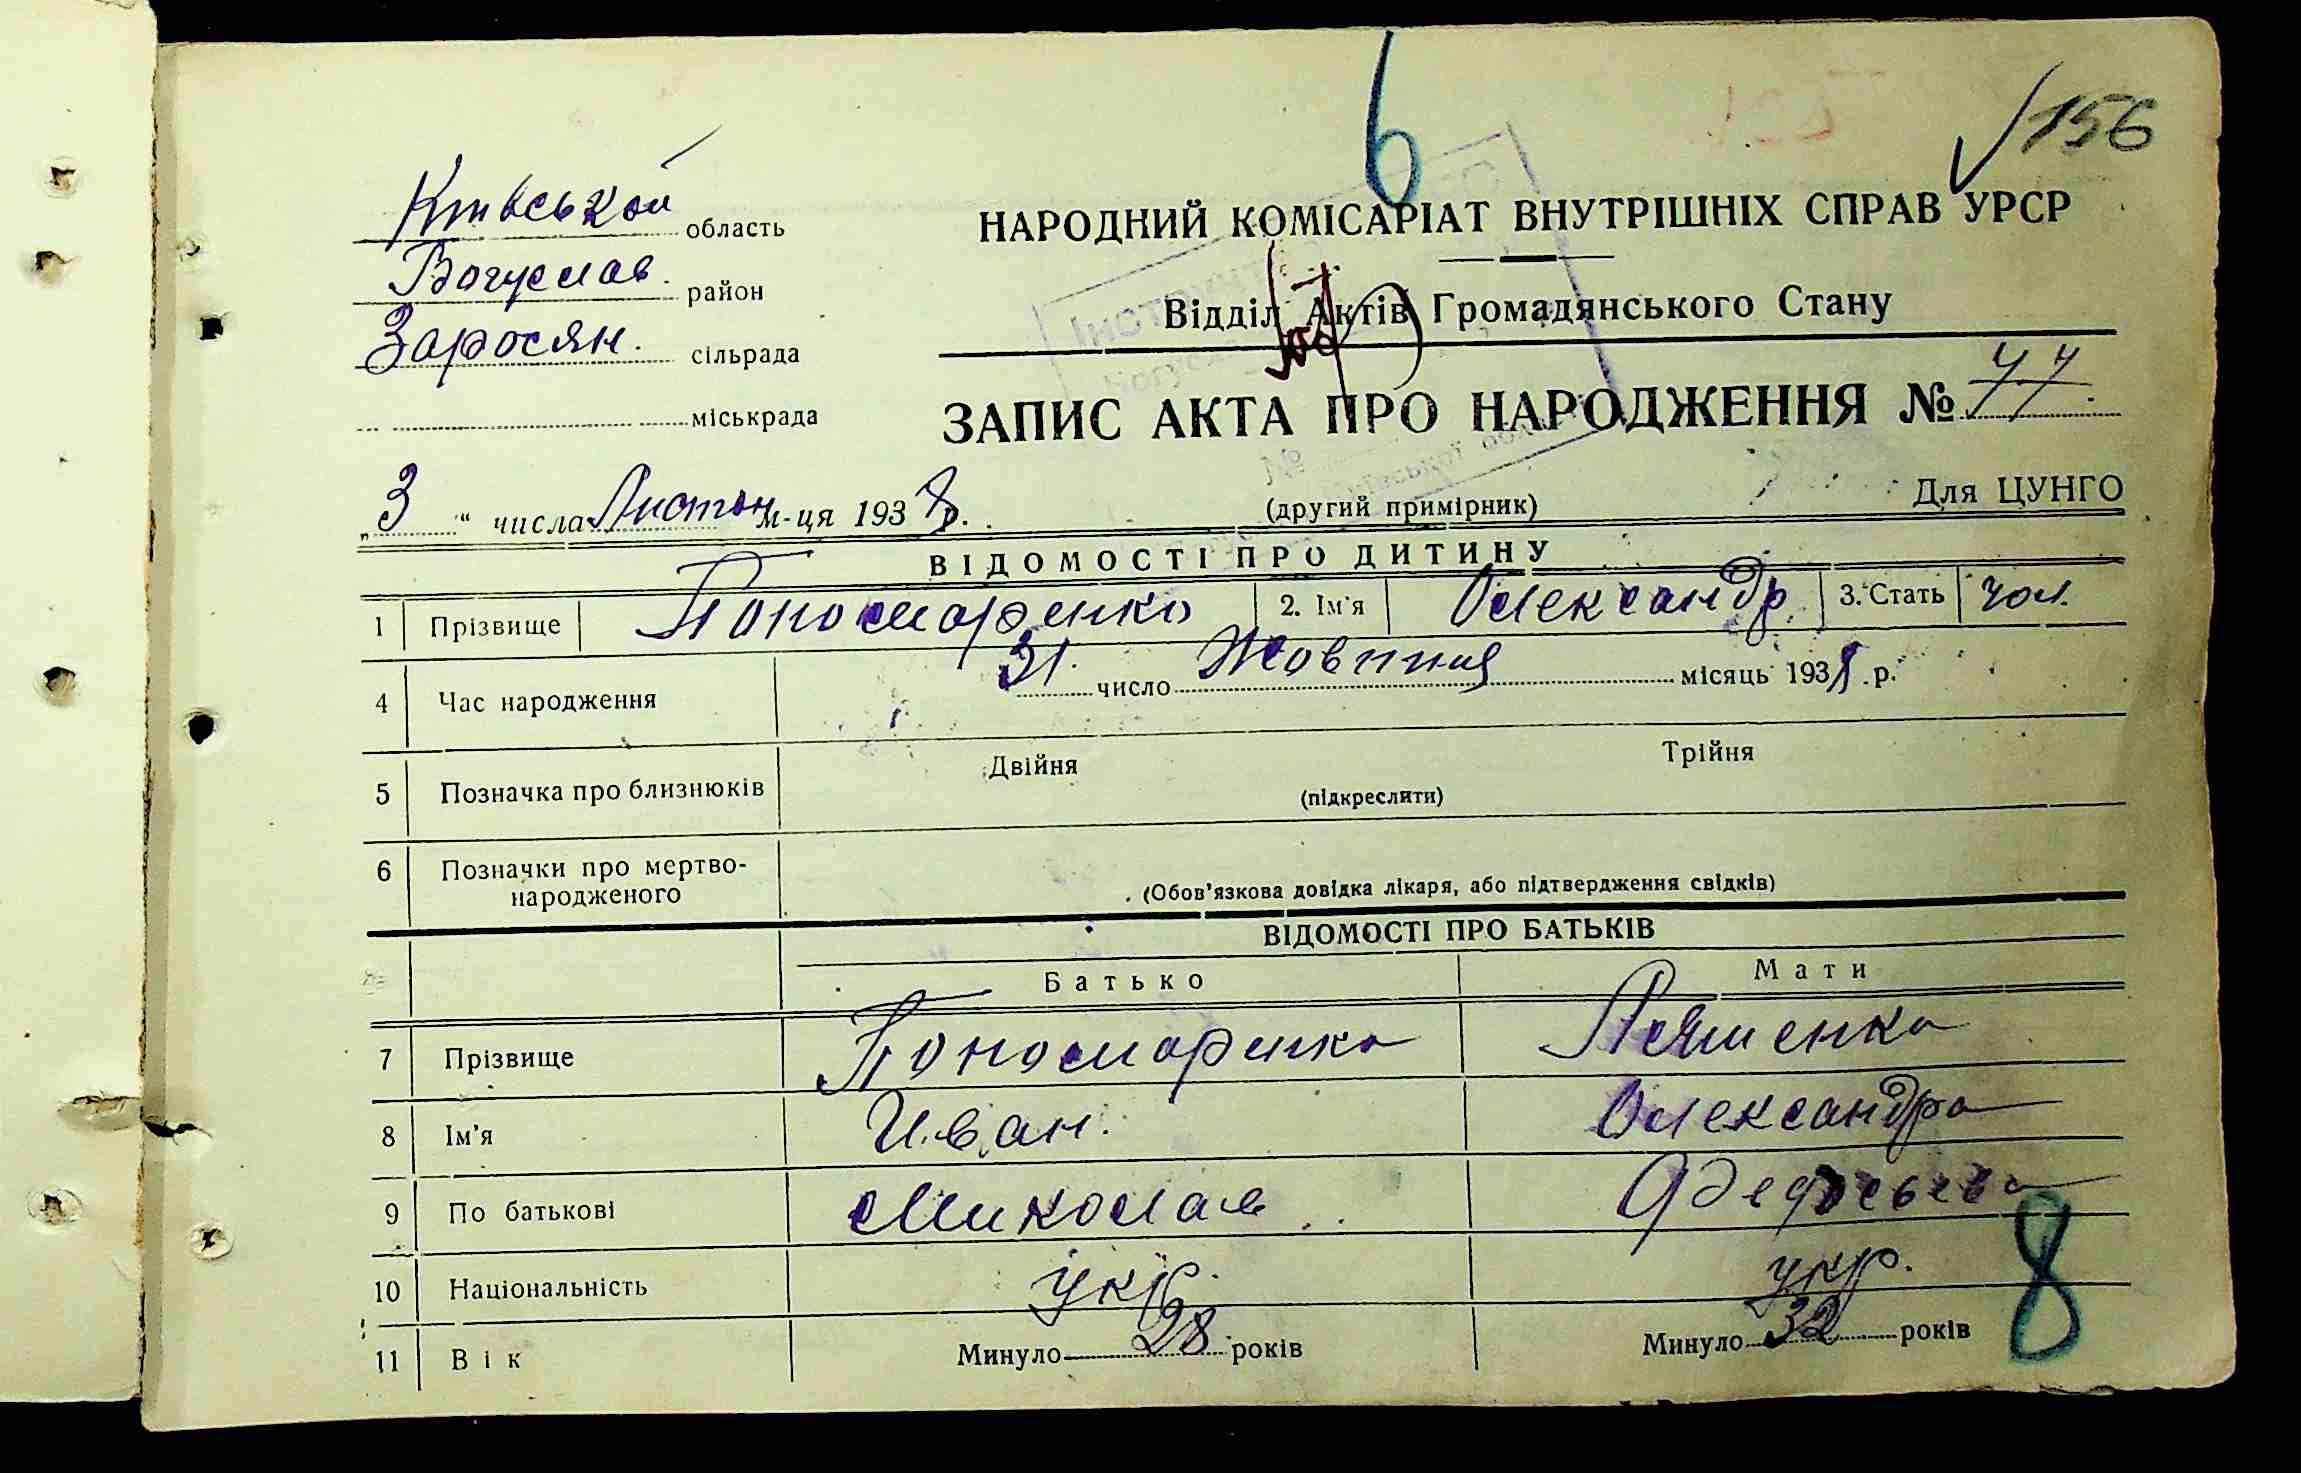 6
156
Київської область
Богуслав. район
Заросян. сільрада
міськрада
НАРОДНИЙ КОМІСАРІАТ ВНУТРІШНІХ СПРАВ УРСР
Відділ Актів Громадянського Стану
ЗАПИС АКТА ПРО НАРОДЖЕННЯ № 77
„3“ числа Листоп м-ця 1938 р.
(другий примірник)
Для ЦУНГО
ВІДОМОСТІ ПРО ДИТИНУ
1 Прізвище Пономаренко 2. Ім'я Олександр 3. Стать чол.
4 Час народження 31. число Жовтня місяць 1938 р.
5 Позначка про близнюків Двійня Трійня
(підкреслити)
6 Позначки про мертво-
народженого
(Обов'язкова довідка лікаря, або підтвердження свідків)
ВІДОМОСТІ ПРО БАТЬКІВ
Батько Мати
7 Прізвище Пономаренко Ляшенко
8 Ім'я Иван. Олександра
9 По батькові Микола
10 Національність укр. укр.
11 Вік Минуло 28 років Минуло 32 років
8